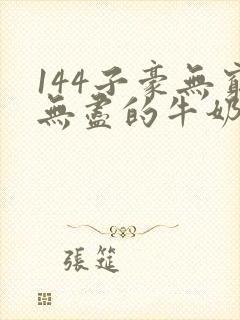 144子豪無窮
無盡的牛奶
張筵